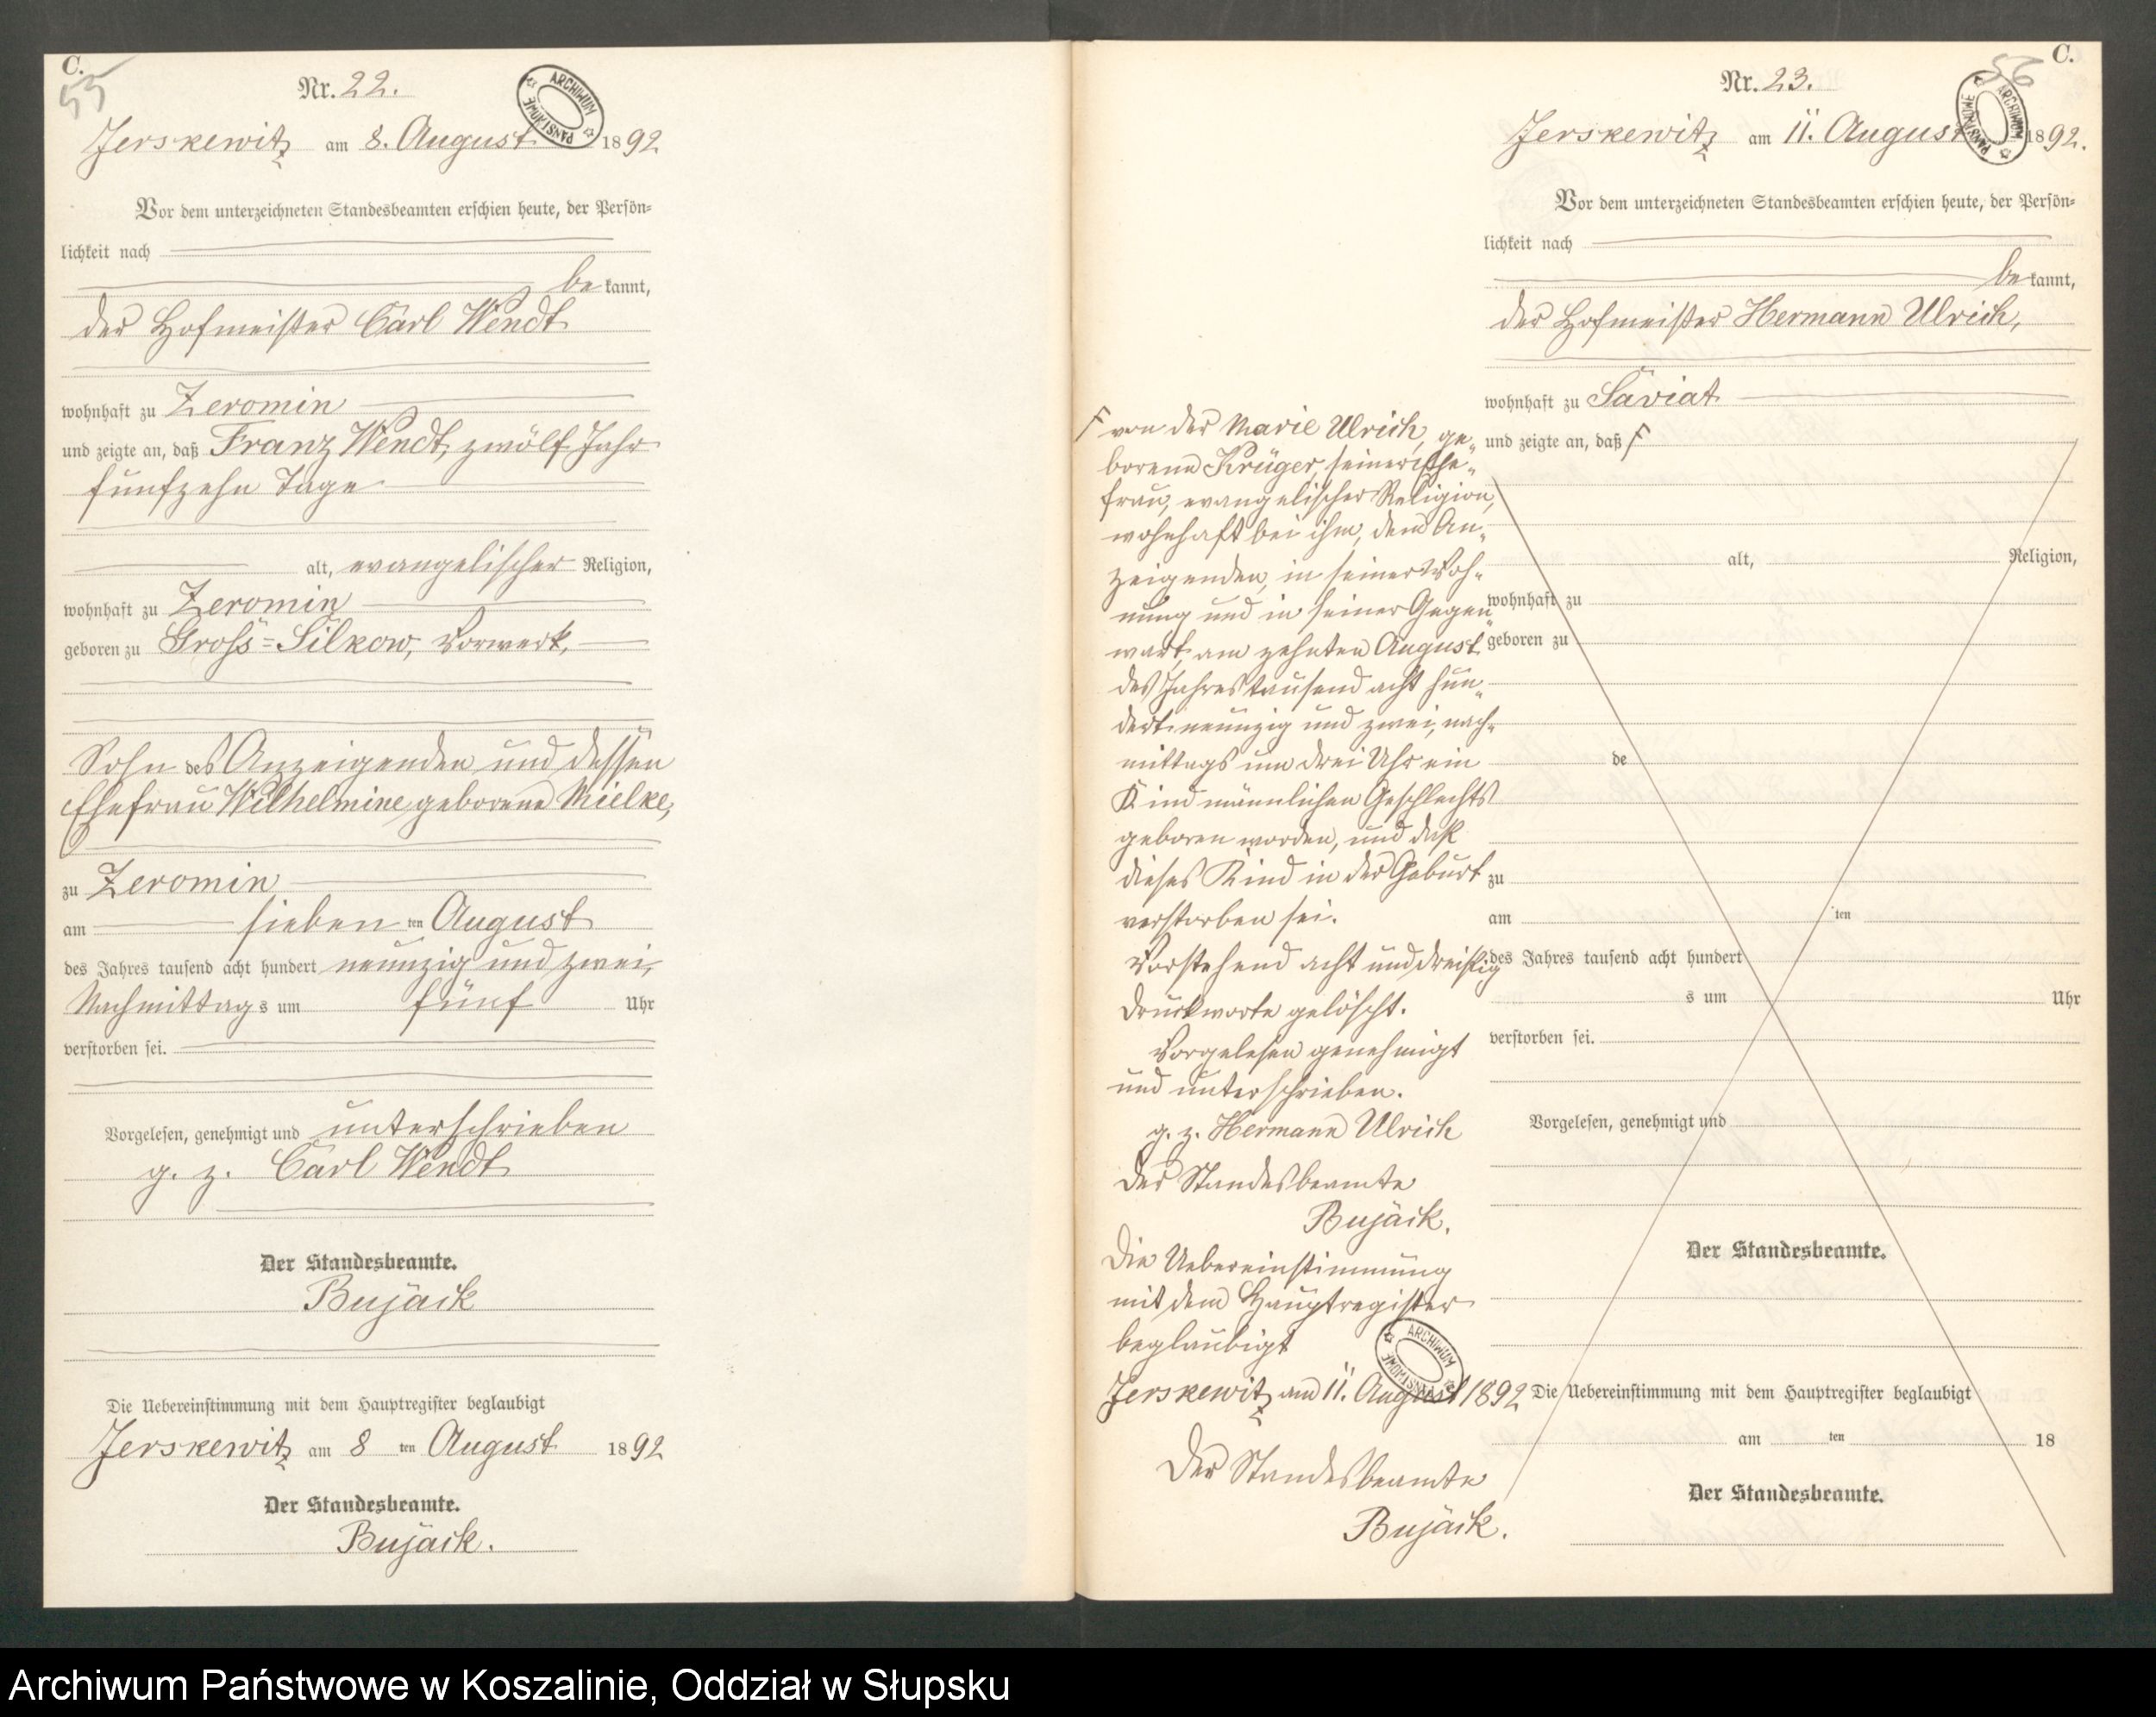 C.
55
Nr. 22.
ARCHIWUM PAŃSTWOWE
Jerskewitz am 8. August 1892
Vor dem unterzeichneten Standesbeamten erschien heute, der Persön=
lichkeit nach
be kannt,
der Hofmeister Carl Wendt
wohnhaft zu Zeromin
und zeigte an, daß Franz Wendt, zwölf Jahr
fünfzehn Tage
alt, evangelischer Religion,
wohnhaft zu Zeromin
geboren zu Gross=Silkow, Vorwerk,
Sohn des Anzeigenden und dessen
Ehefrau Wilhelmine geborene Mielke,
zu Zeromin
am sieben ten August
des Jahres tausend acht hundert neunzig und zwei,
Nachmittag s um fünf Uhr
verstorben sei.
Vorgelesen, genehmigt und unterschrieben
g. z. Carl Wendt
Der Standesbeamte.
Bujack
Die Uebereinstimmung mit dem Hauptregister beglaubigt
Jerskewitz am 8 ten August 1892
Der Standesbeamte.
Bujack.
C.
56
Nr. 23.
ARCHIWUM PAŃSTWOWE
Jerskewitz am 11. August 1892.
Vor dem unterzeichneten Standesbeamten erschien heute, der Persön=
lichkeit nach
be kannt,
der Hofmeister Hermann Ulrich,
wohnhaft zu Saviat
und zeigte an, daß F
alt, Religion,
wohnhaft zu
geboren zu
de
zu
am ten
des Jahres tausend acht hundert
s um Uhr
verstorben sei.
Vorgelesen, genehmigt und
Der Standesbeamte.
Die Uebereinstimmung mit dem Hauptregister beglaubigt
am ten 18
Der Standesbeamte.
F von der Marie Ulrich, ge„
borene Krüger, seiner Ehe„
frau, evangelischer Religion,
wohnhaft bei ihm, dem An„
zeigenden, in seiner Woh„
nung und in seiner Gegen„
wart, am zehnten August
des Jahres tausend acht hun„
dert neunzig und zwei, nach„
mittags um drei Uhr ein
Kind männlichen Geschlechts
geboren worden, und daß
dieses Kind in der Geburt
verstorben sei.
Vorstehend acht und dreißig
Druckworte gelöscht.
Vorgelesen genehmigt
und unterschrieben.
g. z. Hermann Ulrich
Der Standesbeamte
Bujack.
Die Uebereinstimmung
mit dem Hauptregister
beglaubigt
ARCHIWUM PAŃSTWOWE
Jerskewitz am 11. August 1892
Der Standesbeamte
Bujack.
Archiwum Państwowe w Koszalinie, Oddział w Słupsku